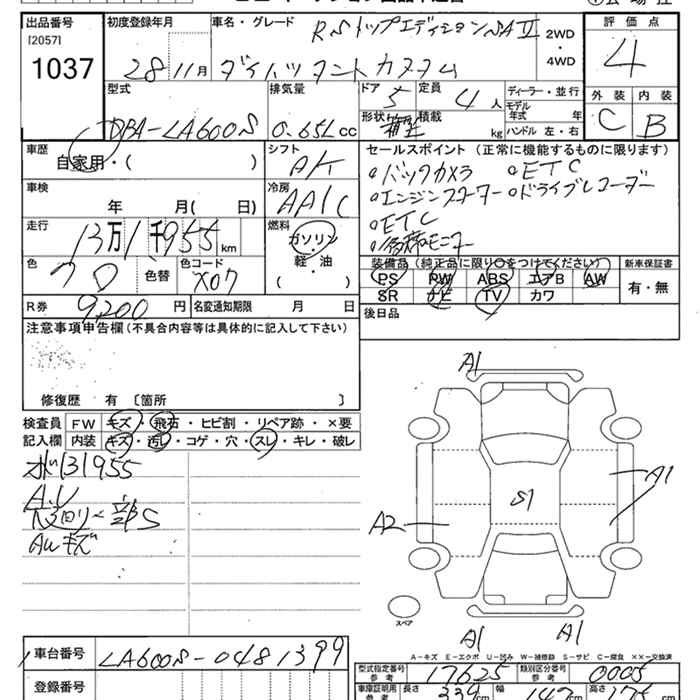 出品番号
[2057]
1037
初度登録年月
28 11月
車名・グレード
RSトップエディションSAⅡ
ダイハツ タントカスタム
2WD
・
4WD
評価点
4
外装 内装
C B
型式
DBA-LA600S
排気量
0.65L cc
ドア
5
定員
4人
形状
積載
kg
ディーラー・並行
モデル年式 年
ハンドル 左・右
車歴
自家用・( )
シフト
車検
年 月( 日)
冷房
AAC
走行
13万1千955km
燃料
ガソリン
軽・油
( )
色
クロ
色替
色コード
X07
R券
9,200円
名変通知期限 月 日
セールスポイント (正常に機能するものに限ります)
・バックカメラ ・ETC
・エンジンスターター・ドライブレコーダー
・ETC
装備品 (純正品に限り○をつけてください)
PS PW ABS エアB AW
SR ナビ TV カワ
新車保証書
有・無
後日品
注意事項申告欄(不具合内容等は具体的に記入して下さい)
修復歴 有 〔箇所 〕
検査員
記入欄
FW キズ・飛石・ヒビ割・リペア跡・×要
内装 キズ・汚し・コゲ・穴・スレ・キレ・破レ
131955
下回り
AWキズ
A1
A1
S1
A2
スペア
A1
A1
A-キズ E-エクボ U-凹み W-補修跡 S-サビ C-腐食 ××-交換済
車台番号
LA600S-0481399
登録番号
型式指定番号
参考
17625
類別区分番号
参考
0005
車庫証明用
参考
長さ
339cm
幅
147cm
高さ
175cm